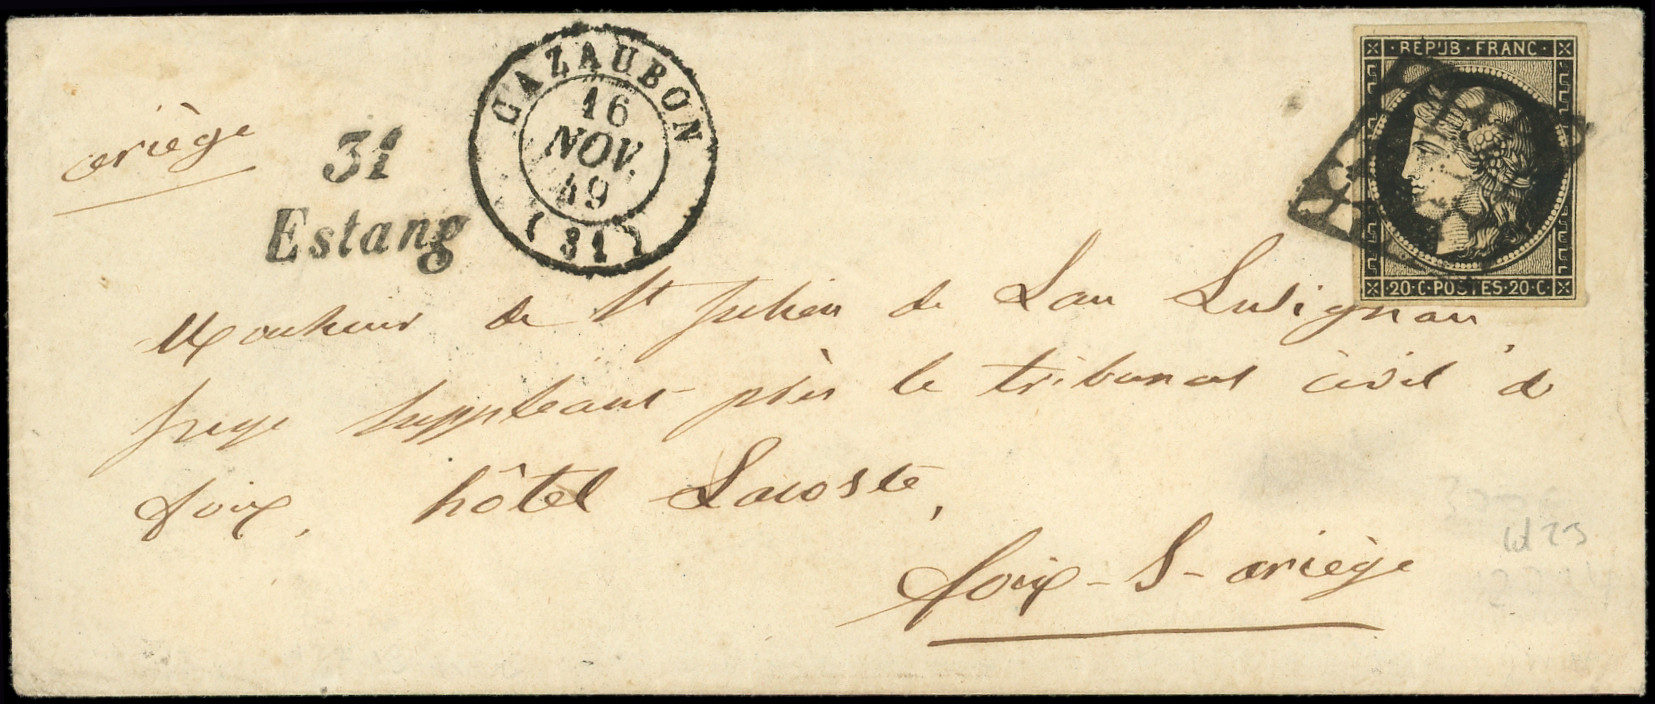 REPUB · FRANC ·
CAZAUBON
16
NOV.
49
(31)
ariège
31
Estang
20 · C · POSTES · 20 · C ·
Monsieur de St Julien de Lau Lusignan
juge suppléant près le tribunal civil de
foix, hôtel Lacoste,
foix - S - ariège